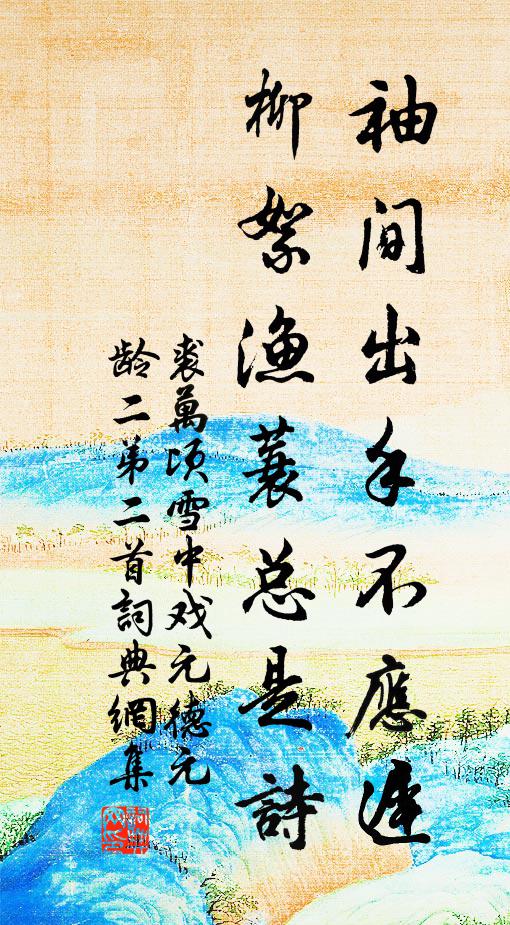 袖間出手不應遲
柳絮漁蓑总是詩
裘萬顷雪中戏元德元
龄二弟二首詞典網集